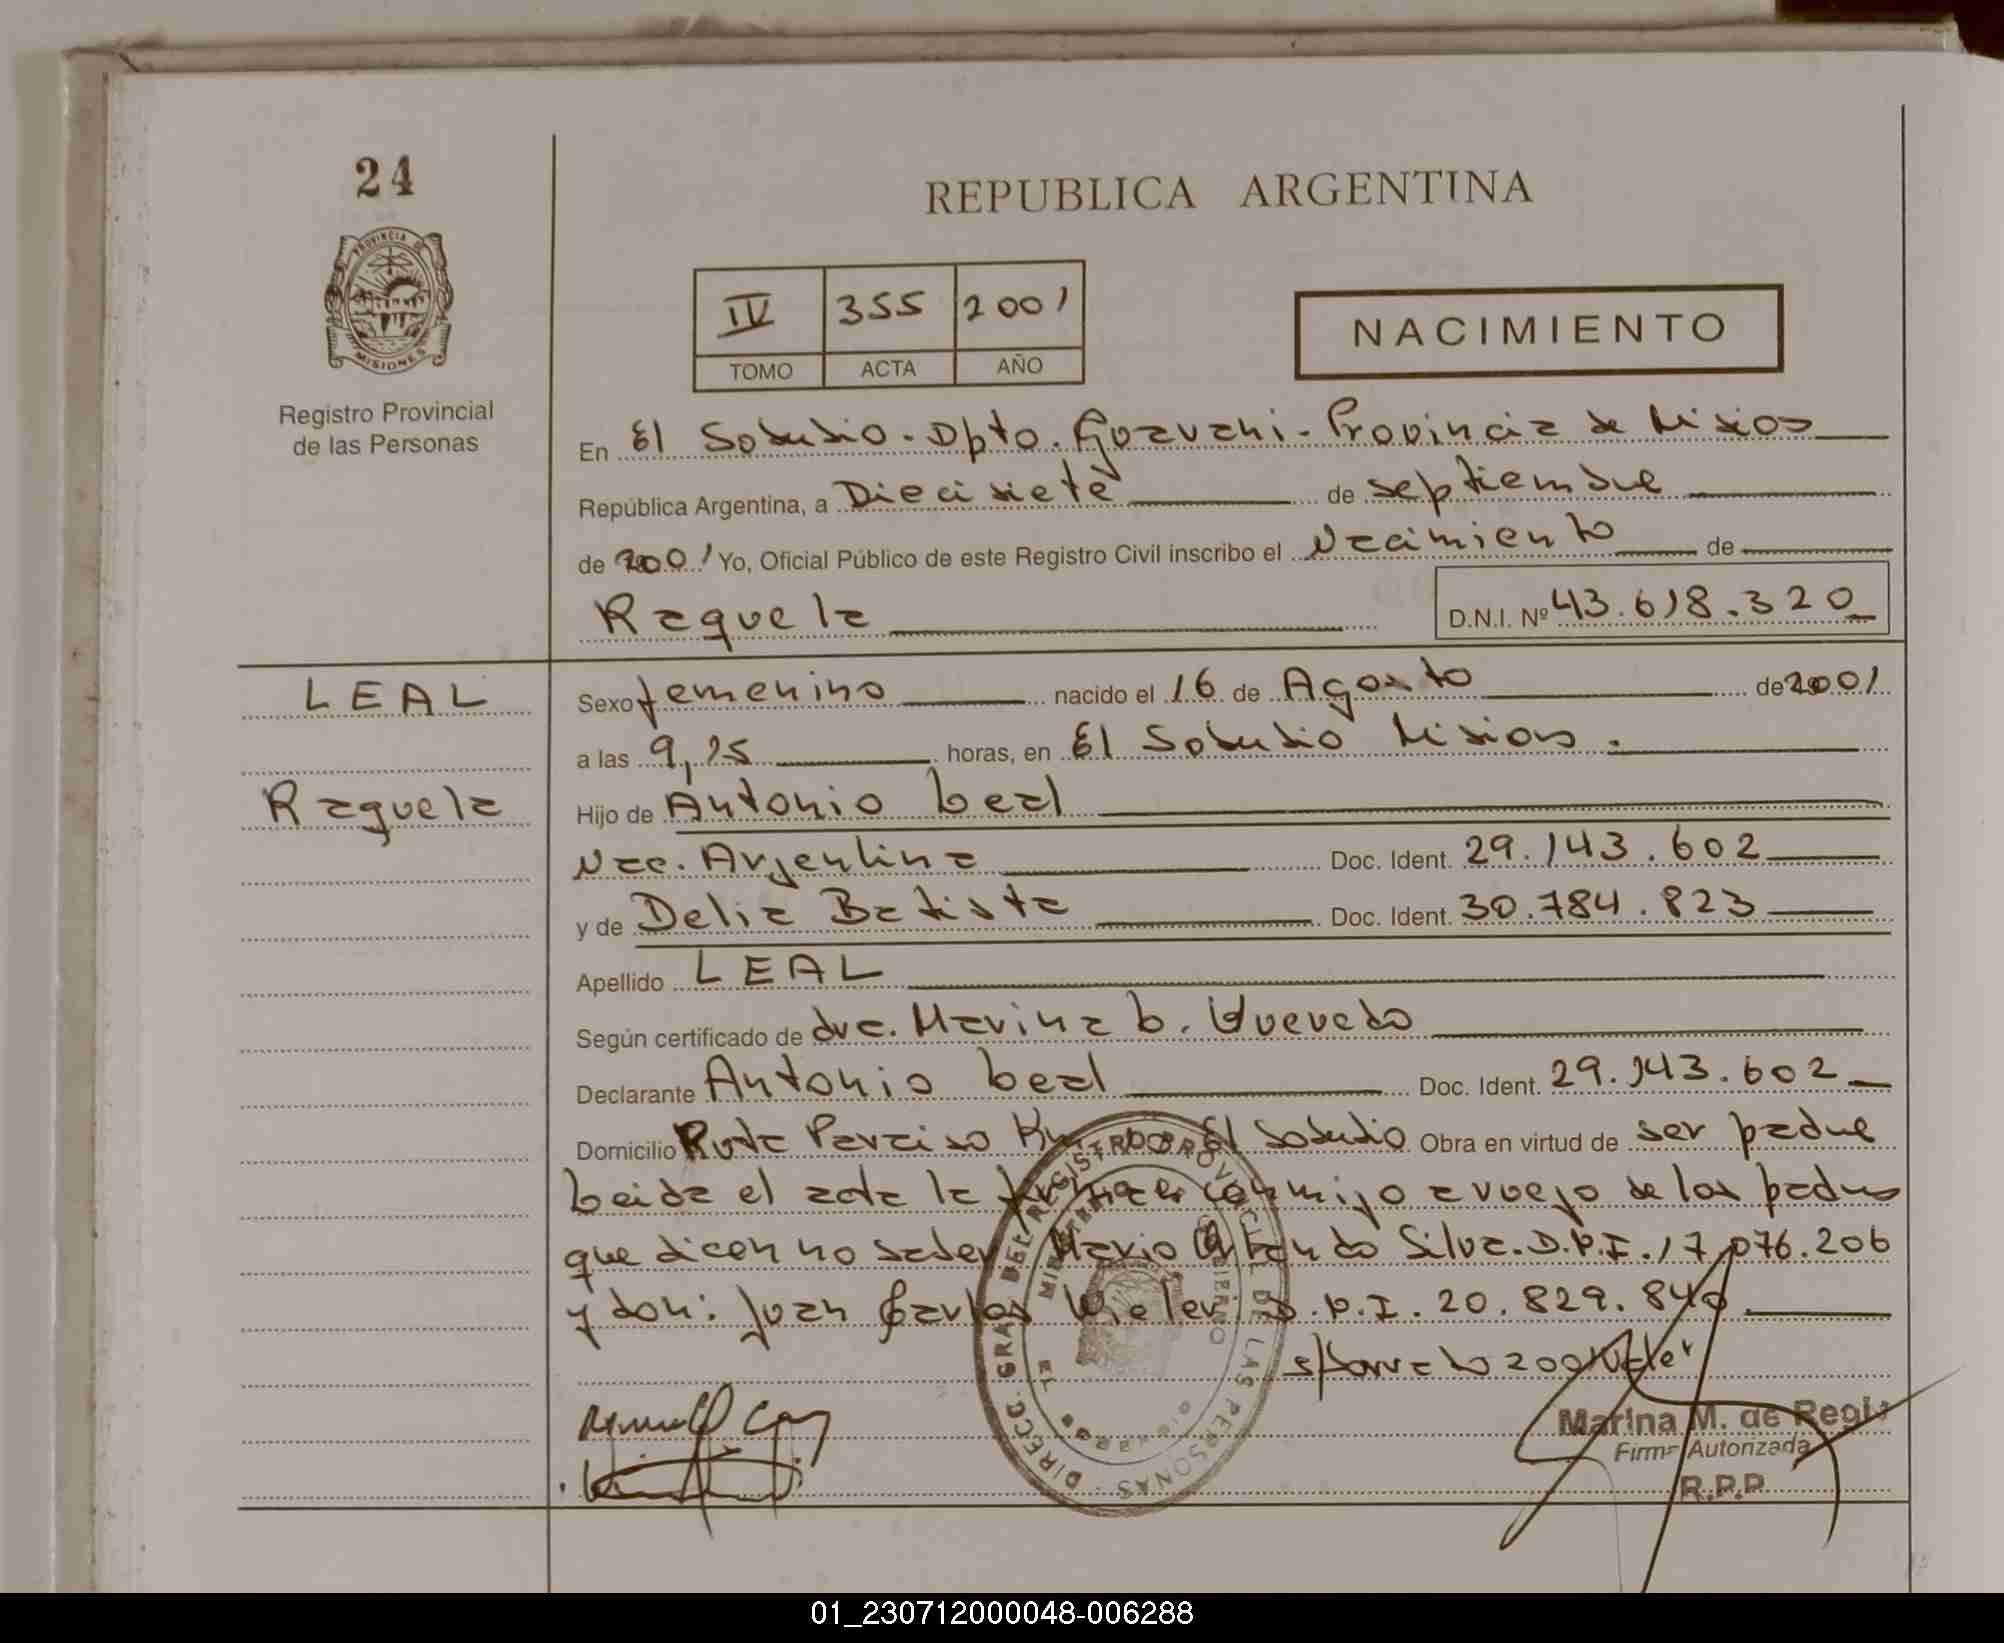 24
REPUBLICA ARGENTINA
PROVINCIA DE
MISIONES
Registro Provincial
de las Personas
IV 355 2001
TOMO ACTA AÑO
NACIMIENTO
En El Soberbio - Dpto. Guarani - Provincia de Misios
República Argentina, a Diecisiete de septiembre
de 2001 Yo, Oficial Público de este Registro Civil inscribo el Nacimiento de
Raquela D.N.I. Nº 43.618.320
LEAL
Raquela
Sexo femenino nacido el 16 de Agosto de 2001
a las 9,15 horas, en El Soberbio Misios.
Hijo de Antonio Leal
Nac. Argentina Doc. Ident. 29.143.602
y de Delia Batista Doc. Ident. 30.784.823
Apellido LEAL
Según certificado de dra. Marina b.
Declarante Antonio Leal Doc. Ident. 29.143.602
Domicilio Ruta Paraiso El Soberbio Obra en virtud de ser padre
Leida el acta la conmigo a ruego de los padres
que dicen no saber Mario Silva. D.N.I. 17.076.206
y don: Juan Carlos D.N.I. 20.829.840
DIRECC. GRAL. DEL REGISTRO PROVINCIAL DE LAS PERSONAS
Marina M. de
Firma Autorizada
R.P.P
01_230712000048-006288